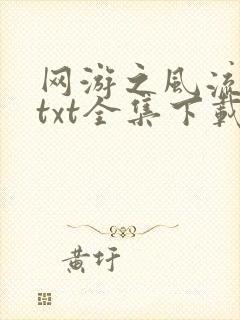 网游之风流
txt全集下载
黄圩